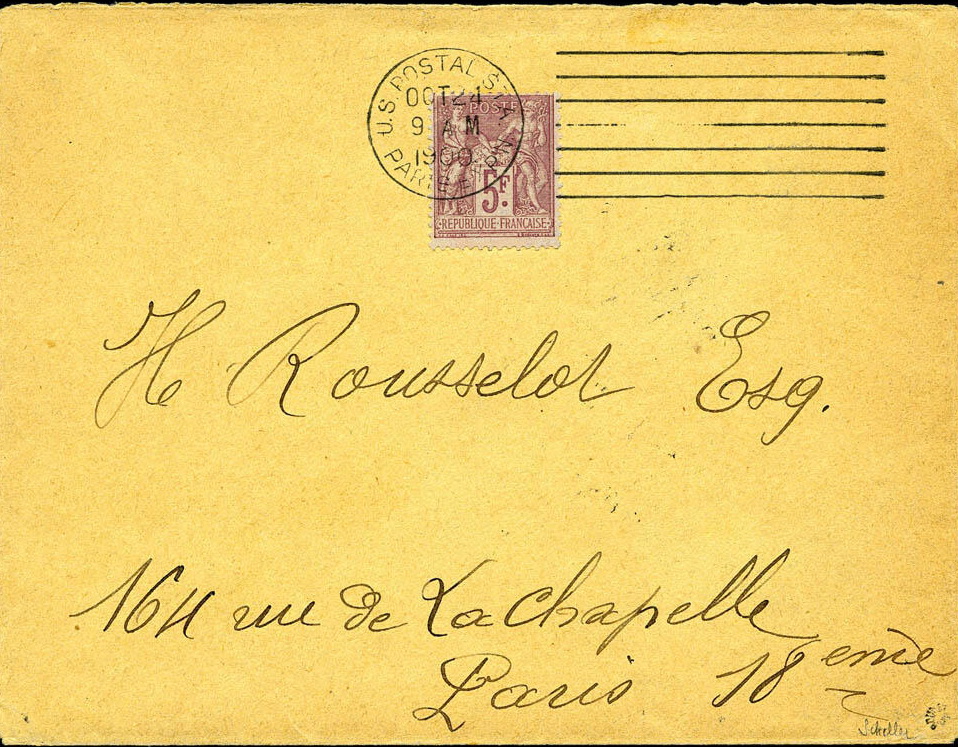 U.S. POSTAL STA.
OCT 24
9 AM
1900
PARIS EXPN.
POSTE
5F.
REPUBLIQUE FRANCAISE
H Rousselot Esq.
164 rue de La Chapelle
Paris 18eme